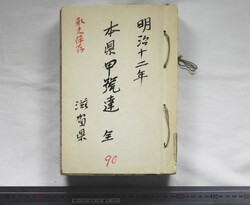 明治十二年
本県甲號達 全
90
滋賀県
永久保存